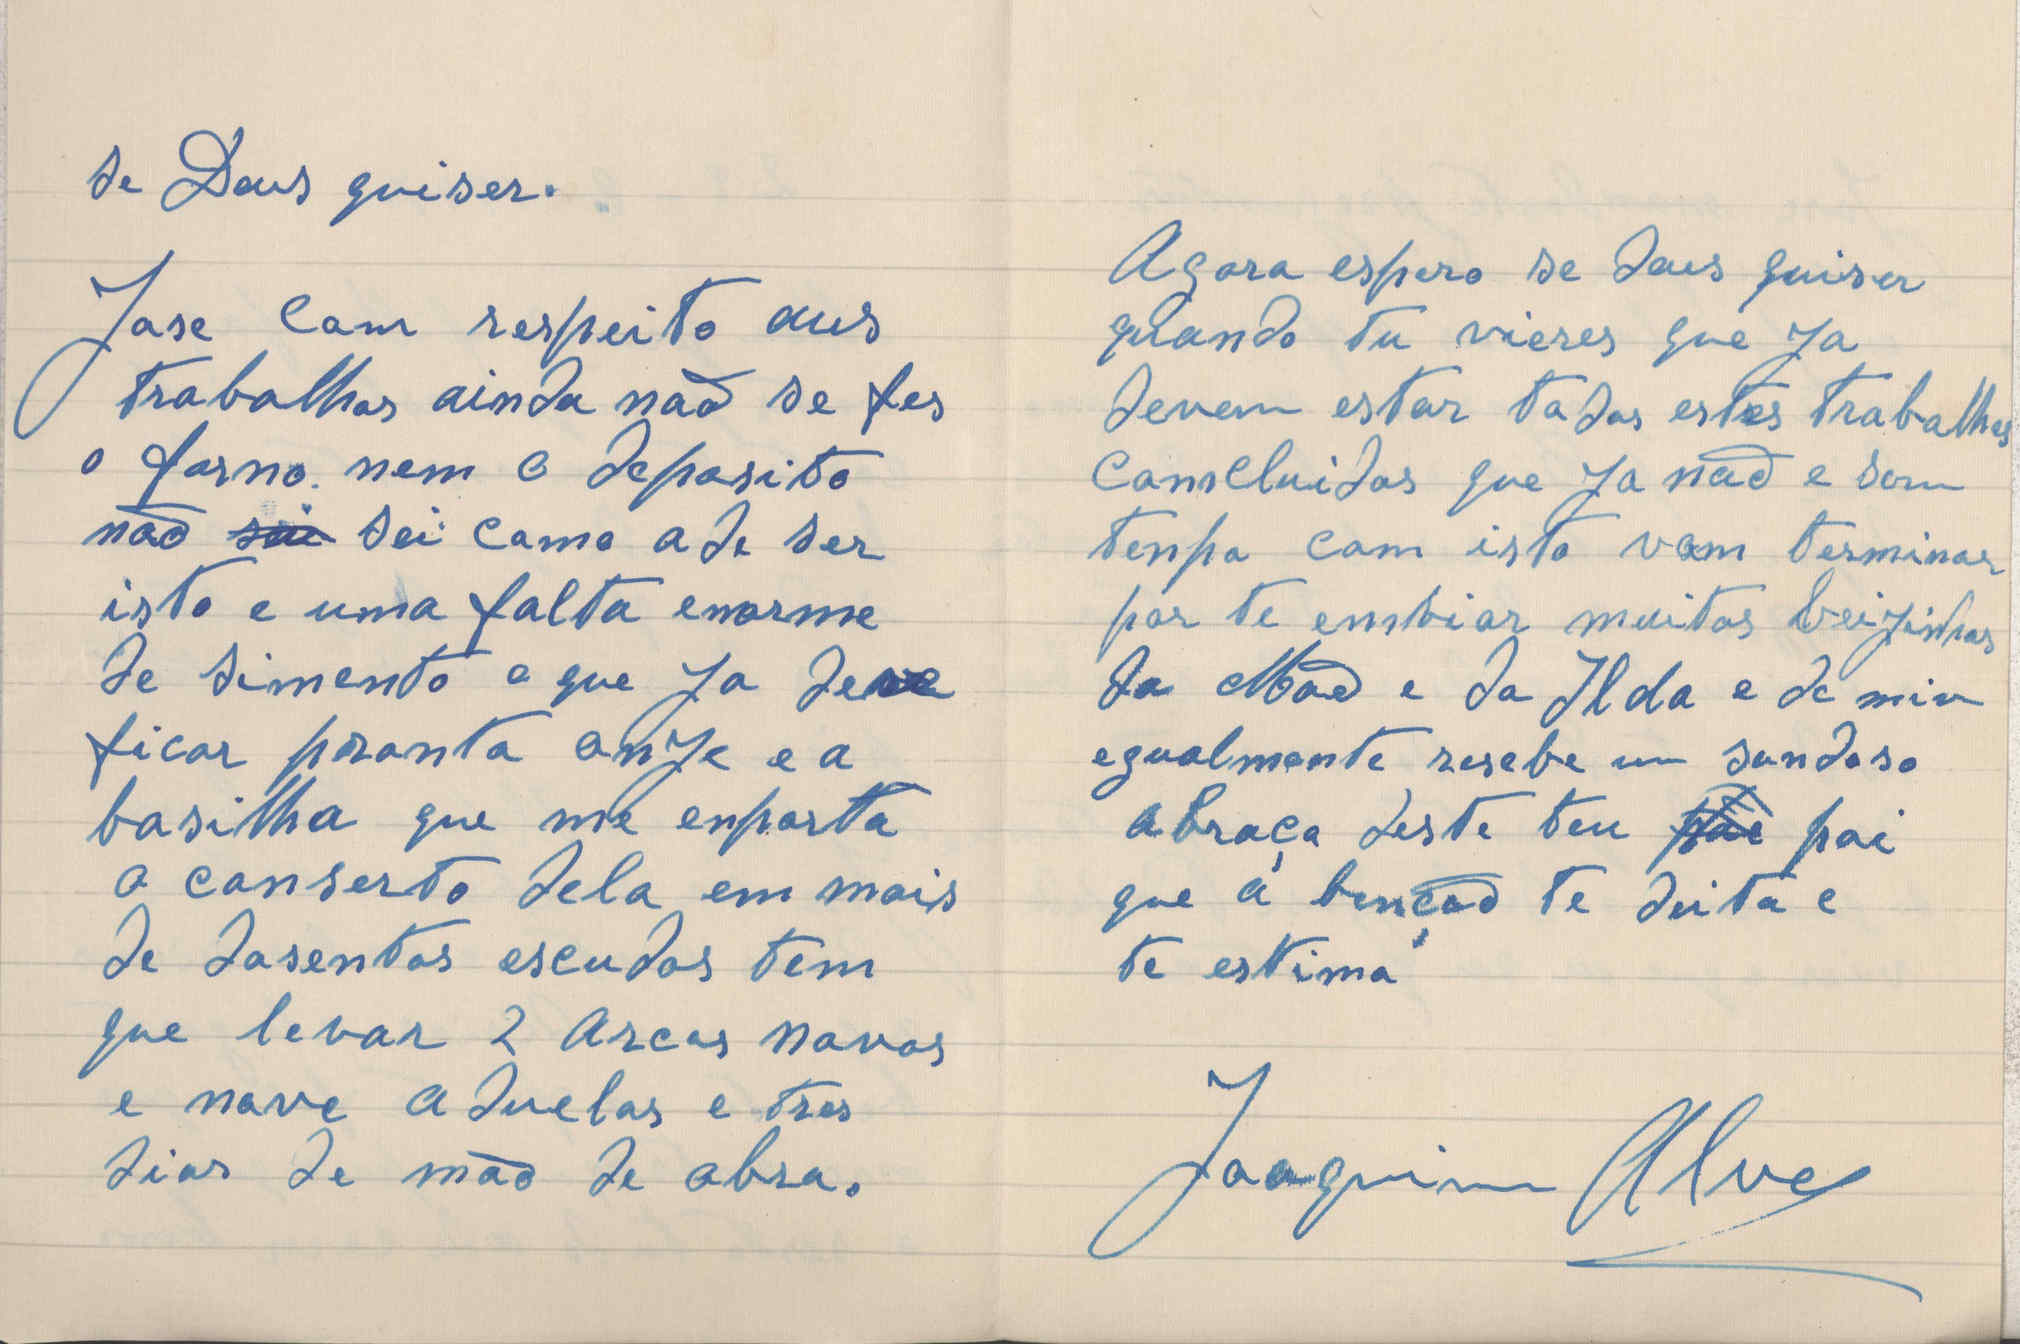 se Deus quiser.
Jose com respeito aus
trabalhos ainda não se fes
o forno. nem o deposito
não sei sei como ade ser
isto e uma falta enorme
de simento e que ja deve
ficar pronta onje e a
basilha que me enporta
o conserto dela em mais
de dosentos escudos tem
que levar 2 Arcos novos
e nove aduelas e tres
dias de mão de obra.
Agora espero se deus quiser
quando tu vieres que ja
devem estar todos estes trabalhos
comcluidos que ja não e sem
tenpo com isto vom terminar
por te embiar muitos beijinhos
da Mãe e da Ilda e de min
egualmente resebe um saudoso
abraça deste teu pai pai
que a benção te deita e
te estima
Joaquim Alve